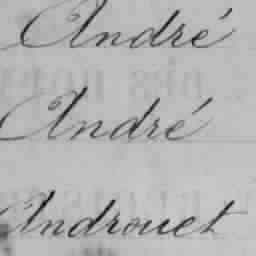 André
André
Androuet